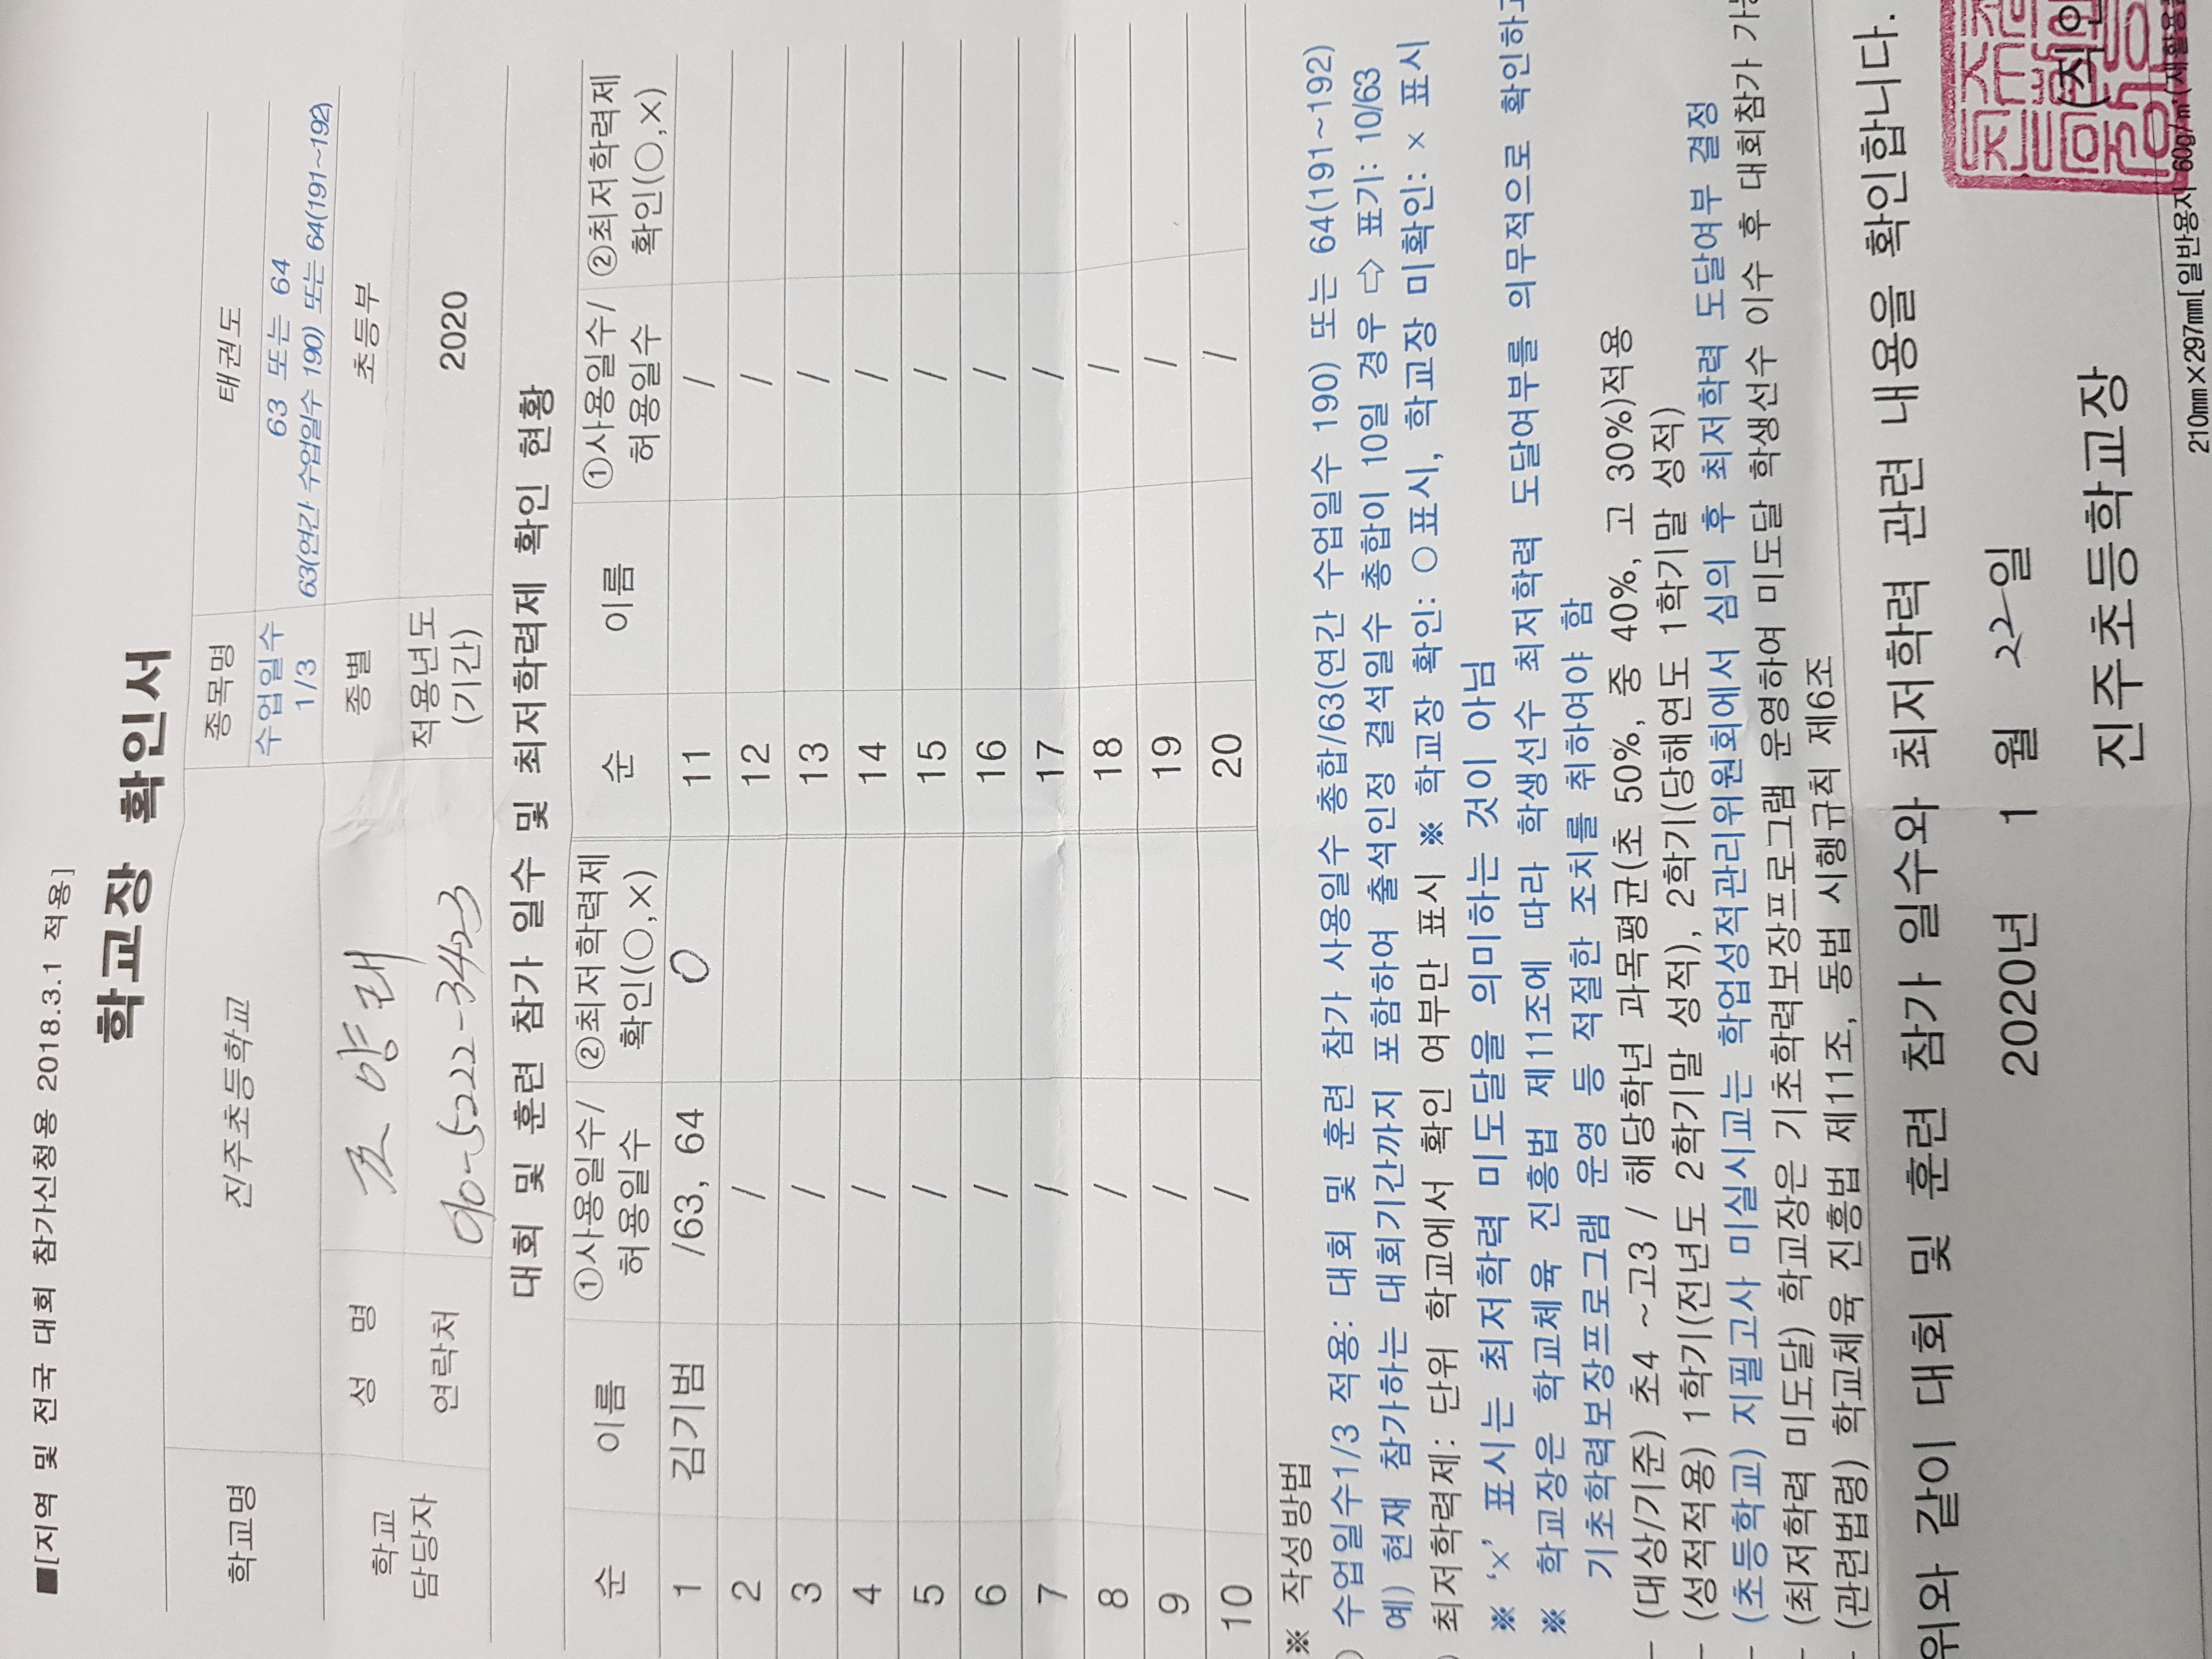 ■[지역 및 전국 대회 참가신청용 2018.3.1 적용]
학교장 확인서
학교명 진주초등학교 종목명 태권도
수업일수 1/3 63 또는 64
63(연간 수업일수 190) 또는 64(191~192)
학교 담당자 성 명 조양래 종별 초등부
연락처 010-5222-3423 적용년도 (기간) 2020
대회 및 훈련 참가 일수 및 최저학력제 확인 현황
순 이름 ①사용일수/허용일수 ②최저학력제 확인(○,×) 순 이름 ①사용일수/허용일수 ②최저학력제 확인(○,×)
1 김기범 /63, 64 O 11 /
2 / 12 /
3 / 13 /
4 / 14 /
5 / 15 /
6 / 16 /
7 / 17 /
8 / 18 /
9 / 19 /
10 / 20 /
※ 작성방법
) 수업일수1/3 적용: 대회 및 훈련 참가 사용일수 총합/63(연간 수업일수 190) 또는 64(191~192)
예) 현재 참가하는 대회기간까지 포함하여 출석인정 결석일수 총합이 10일 경우 ⇨ 표기: 10/63
) 최저학력제: 단위 학교에서 확인 여부만 표시 ※ 학교장 확인: ○표시, 학교장 미확인: × 표시
※ '×' 표시는 최저학력 미도달을 의미하는 것이 아님
※ 학교장은 학교체육 진흥법 제11조에 따라 학생선수 최저학력 도달여부를 의무적으로 확인하고
기초학력보장프로그램 운영 등 적절한 조치를 취하여야 함
- (대상/기준) 초4 ~고3 / 해당학년 과목평균(초 50%, 중 40%, 고 30%)적용
- (성적적용) 1학기(전년도 2학기말 성적), 2학기(당해연도 1학기말 성적)
- (초등학교) 지필고사 미실시교는 학업성적관리위원회에서 심의 후 최저학력 도달여부 결정
- (최저학력 미도달) 학교장은 기초학력보장프로그램 운영하여 미도달 학생선수 이수 후 대회참가 가능
- (관련법령) 학교체육 진흥법 제11조, 동법 시행규칙 제6조
위와 같이 대회 및 훈련 참가 일수와 최저학력 관련 내용을 확인합니다.
2020년 1 월 22일
진주초등학교장 (직인
210㎜×297㎜[일반용지 60g/㎡(재활용품